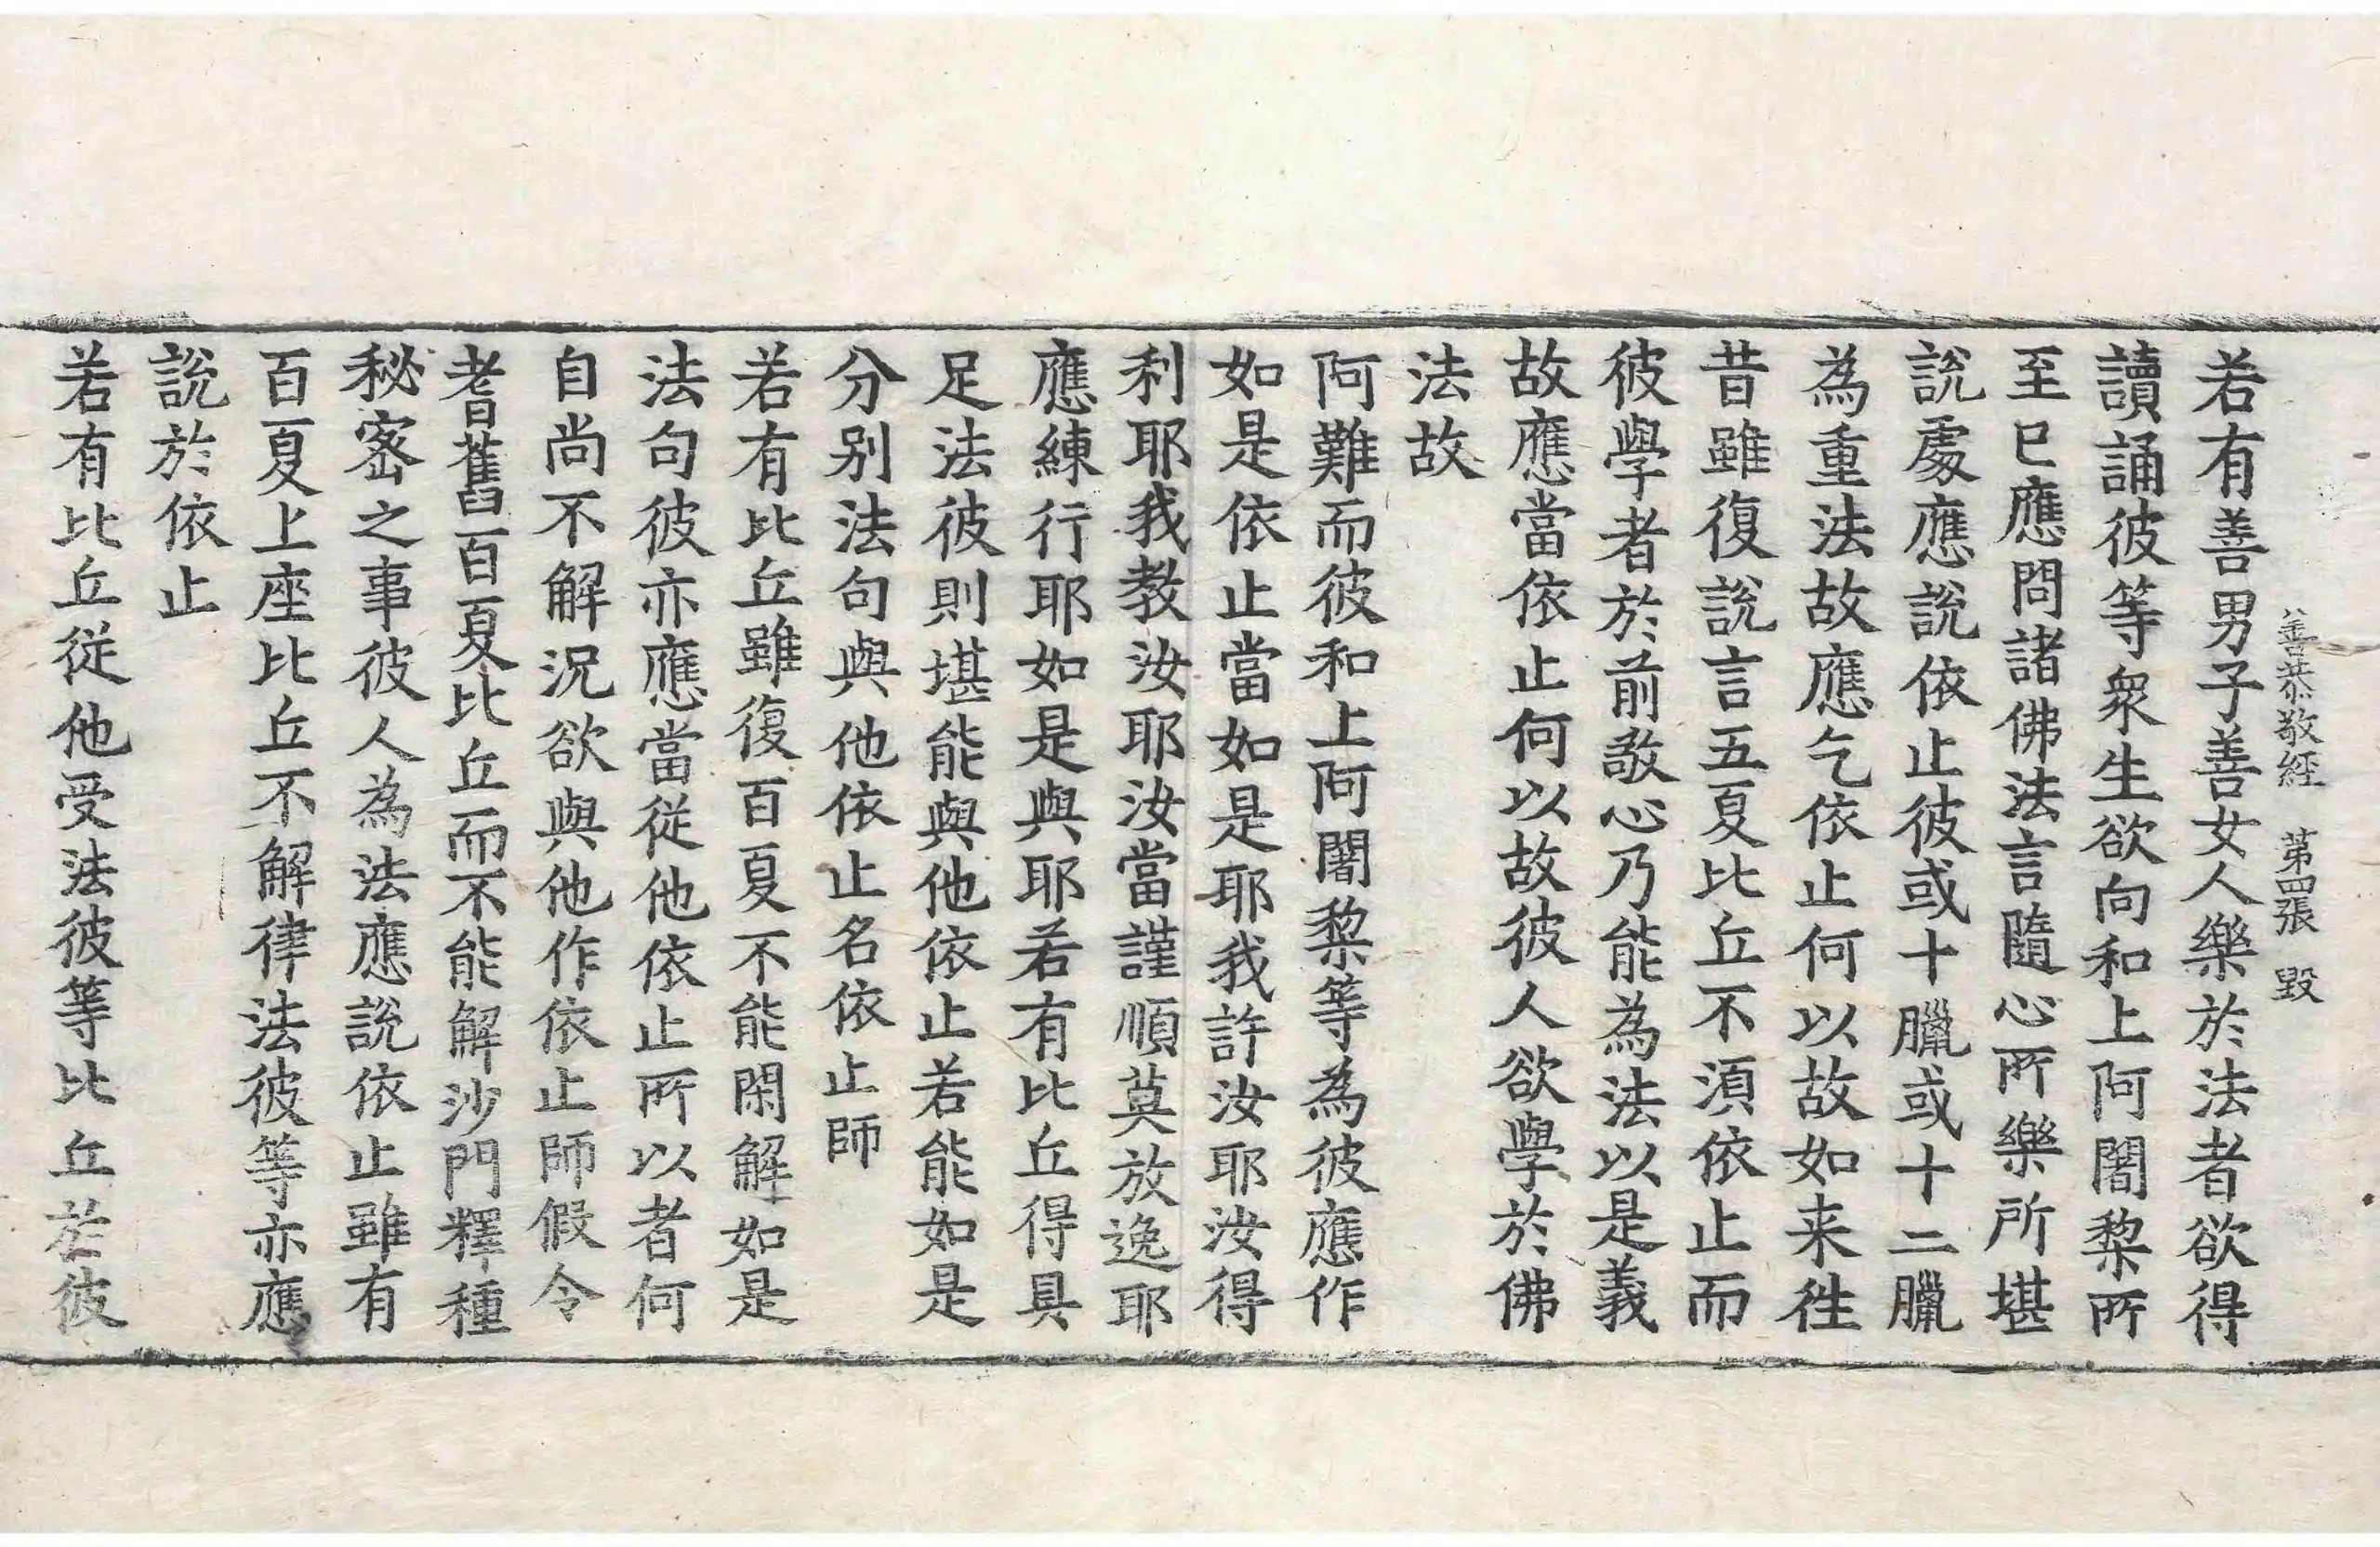 善恭敬經 第四張 毀
若有善男子善女人樂於法者欲得
讀誦彼等衆生欲向和上阿闍棃所
至已應問諸佛法言隨心所樂所堪
說處應說依止彼或十臘或十二臘
為重法故應乞依止何以故如来徃
昔雖復說言五夏比丘不湏依止而
彼學者於前敬心乃能為法以是義
故應當依止何以故彼人欲學於佛
法故
阿難而彼和上阿闍棃等為彼應作
如是依止當如是耶我許汝耶汝得
利耶我教汝耶汝當謹順莫放逸耶
應練行耶如是與耶若有比丘得具
足法彼則堪能與他依止若能如是
分别法句與他依止名依止師
若有比丘雖復百夏不能閑解如是
法句彼亦應當從他依止所以者何
自尚不解况欲與他作依止師假令
耆舊百夏比丘而不能解沙門釋種
秘密之事彼人為法應說依止雖有
百夏上座比丘不解律法彼等亦應
說於依止
若有比丘從他受法彼等比丘於彼